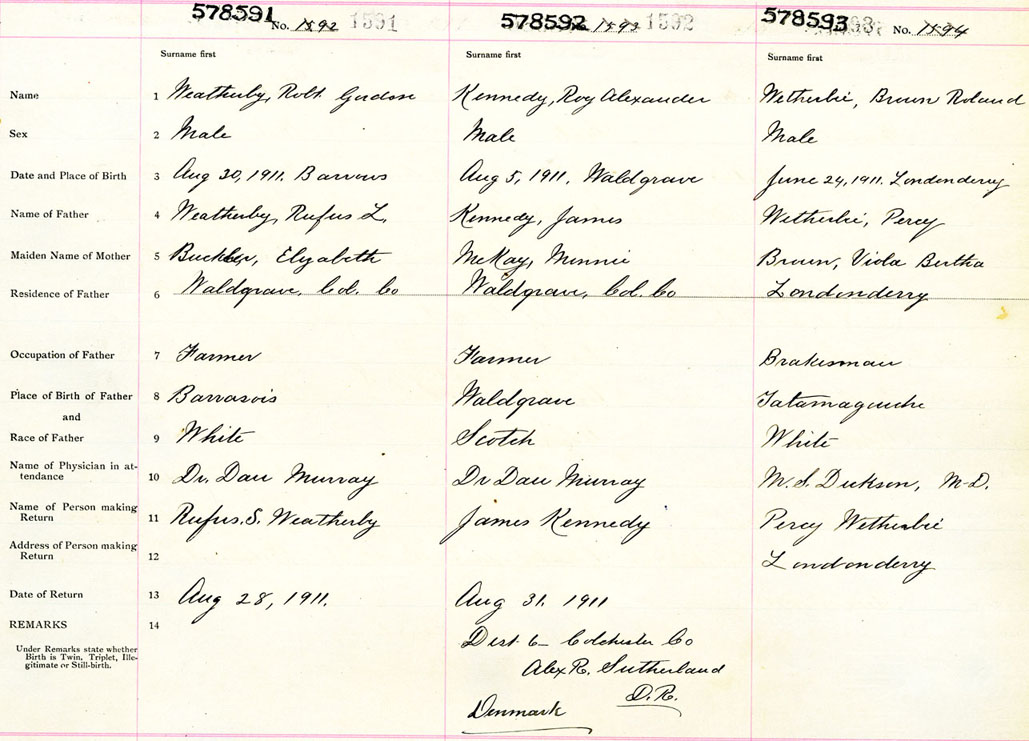 578591 No. 1592 1591
578592 1593 1592
578593 No. 1594
Surname first
Surname first
Surname first
Name 1 Weatherby, Robt Gordon Kennedy, Roy Alexander Wetherbie, Brown Roland
Sex 2 Male Male Male
Date and Place of Birth 3 Aug 30, 1911. Aug 5, 1911, Waldgrave June 24, 1911. Londonderry
Name of Father 4 Weatherby, Rufus L. Kennedy, James Wetherbie, Percy
Maiden Name of Mother 5 Elizabeth McKay, Minnie Brown, Viola Bertha
Residence of Father 6 Waldgrave, Col. Co Waldgrave, Col. Co Londonderry
Occupation of Father 7 Farmer Farmer Brakesman
Place of Birth of Father 8 Waldgrave Tatamagouche
and
Race of Father 9 White Scotch White
Name of Physician in at-
tendance 10 Dr. Dan Murray Dr Dan Murray M. S. Dickson, M.D.
Name of Person making
Return 11 Rufus. S. Weatherby James Kennedy Percy Wetherbie
Address of Person making
Return 12 Londonderry
Date of Return 13 Aug 28, 1911. Aug 31. 1911
REMARKS 14
Under Remarks state whether
Birth is Twin, Triplet, Ille-
gitimate or Still-birth.
Dist 6 – Colchester Co
Alex R. Sutherland
D.R.
Denmark